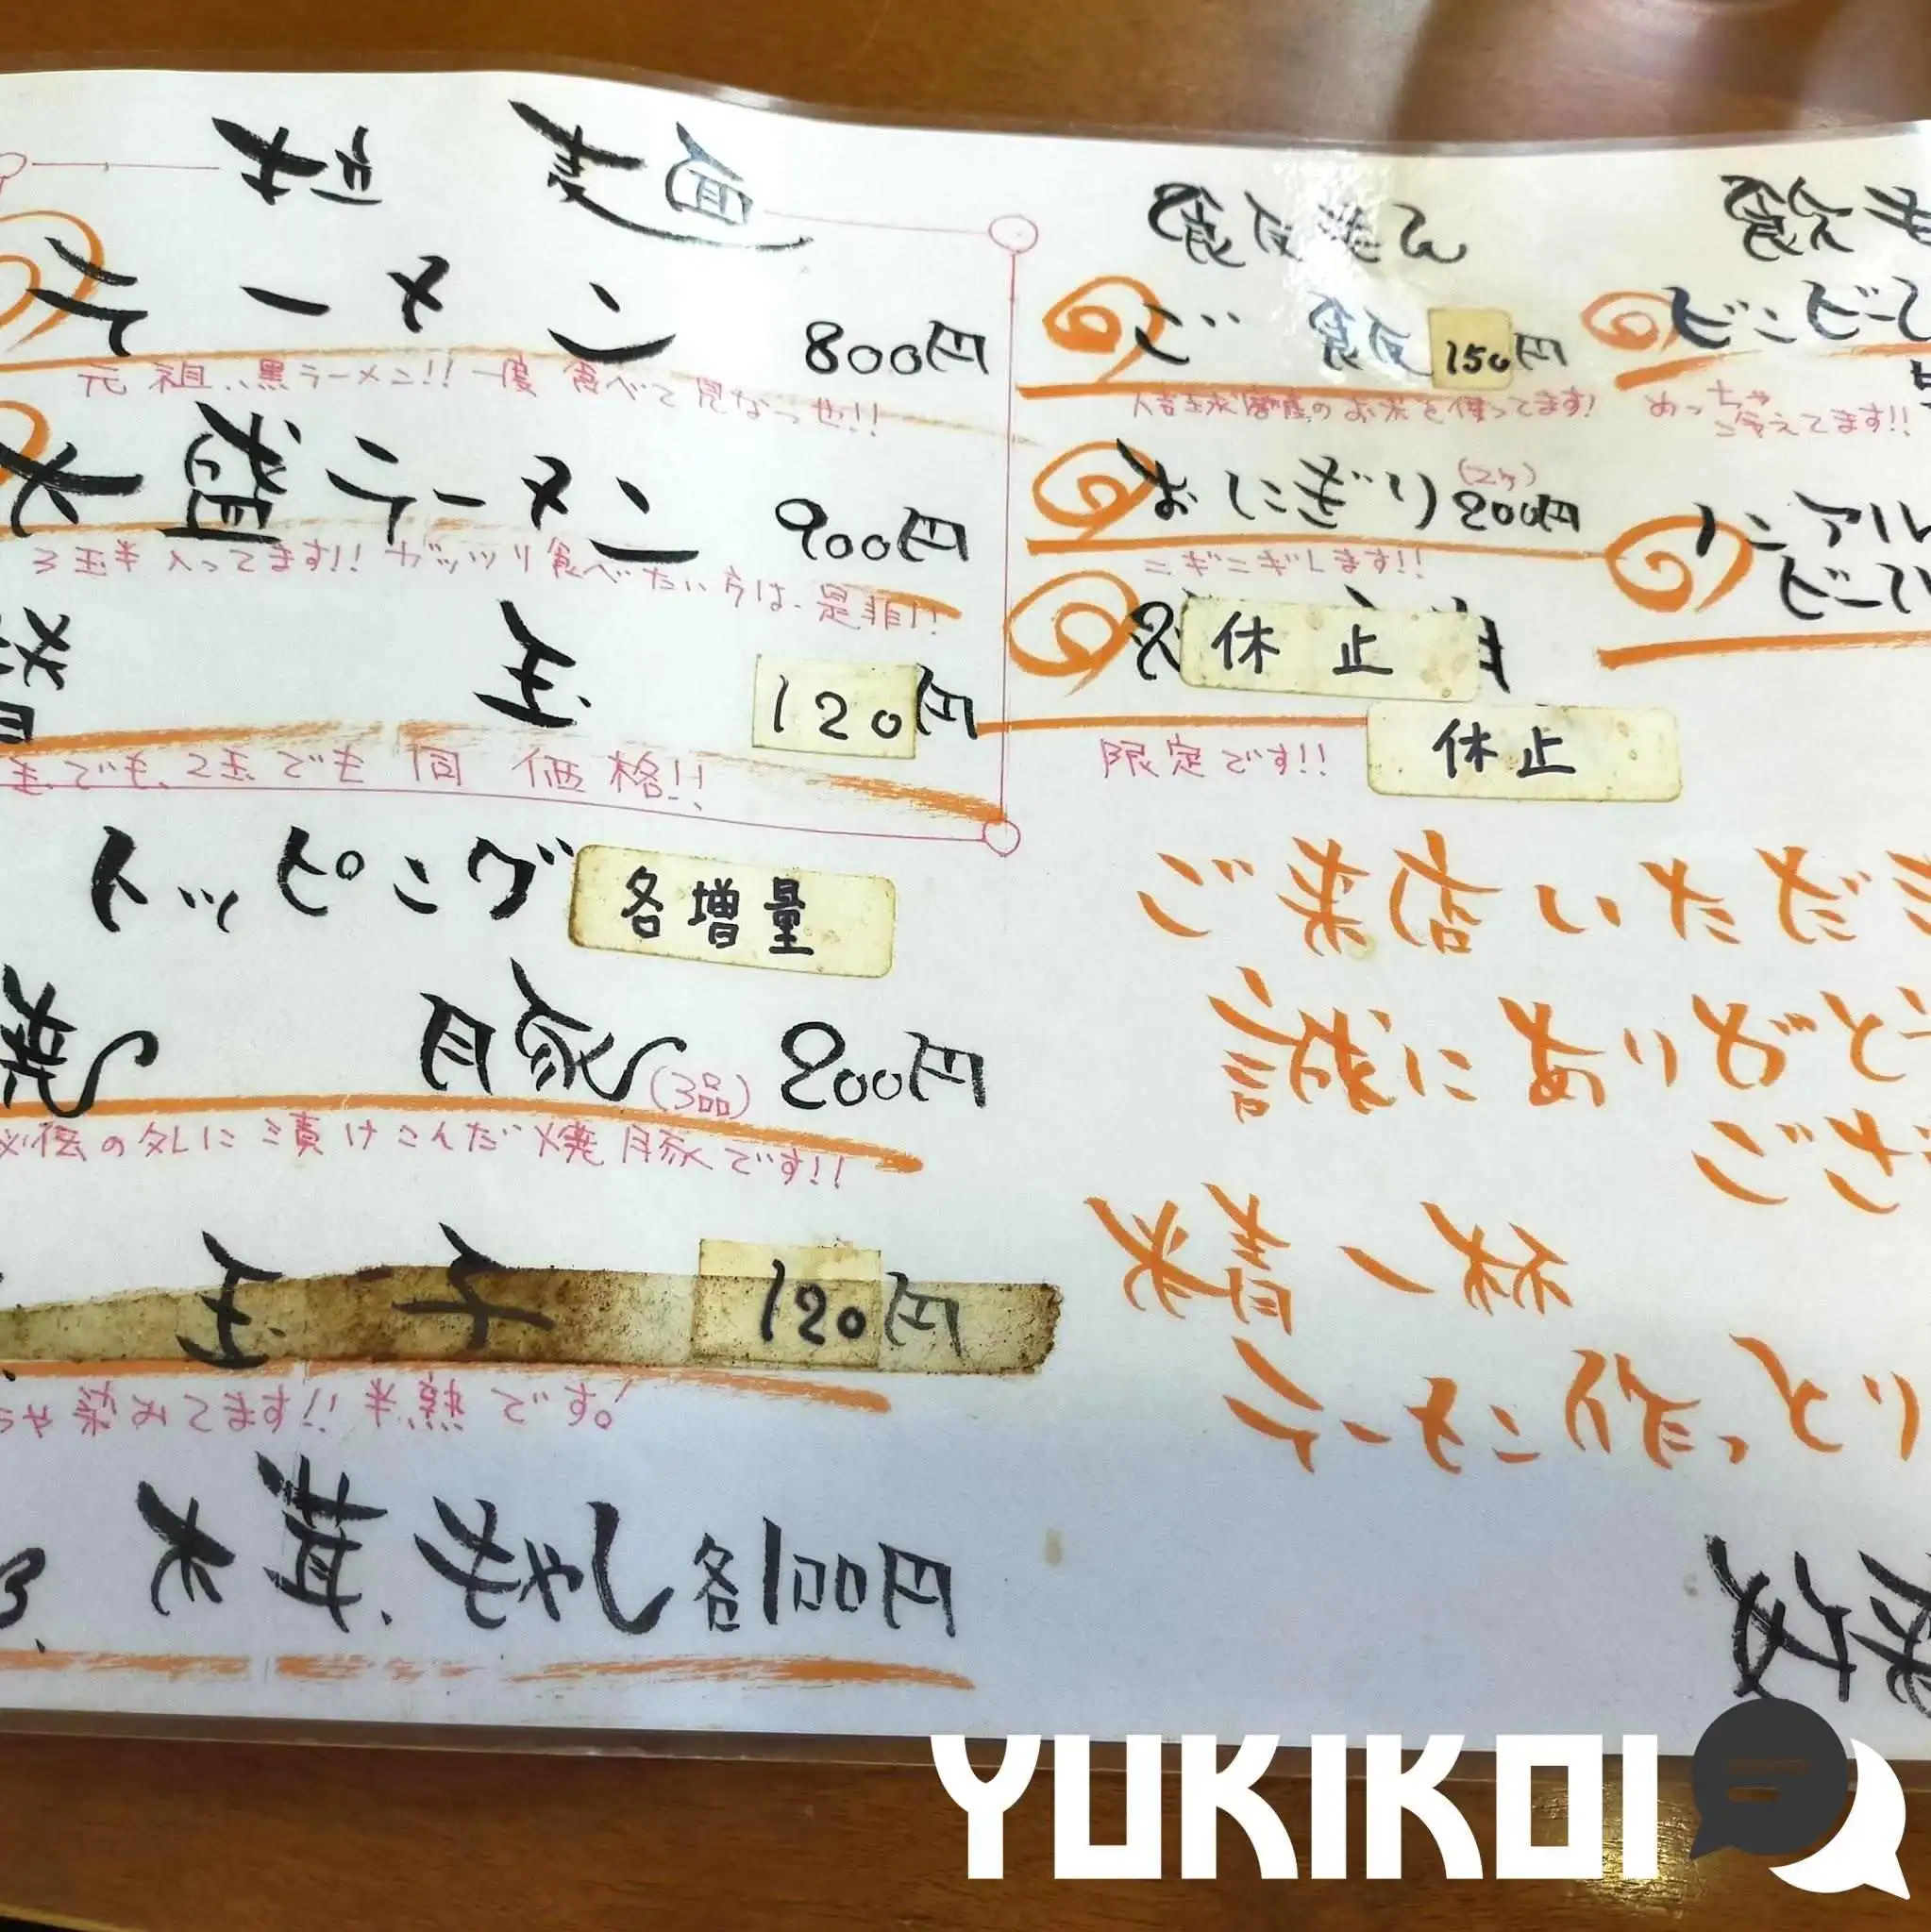 麺類
ラーメン 800円
元祖、黒ラーメン!!一度食べて見なっせ!!
大盛ラーメン 900円
3玉半入ってます!!ガッツリ食べたい方は、是非!!
替玉 120円
玉でも、2玉でも同価格!!
トッピング 各増量
焼豚(3品) 200円
秘伝のタレに漬けこんだ焼豚です!!
玉子 120円
染みてます!!半熟です。
木茸、もやし各100円
ご飯 150円
人吉球磨産のお米を使ってます!
おにぎり(2ケ) 200円
ニギニギします!!
休止
限定です!!
休止
めっちゃ冷えてます!!
ビンビール
ノンアル
ビール
ご来店いただき
誠にありがとう
ござ
精一杯
ラーメン作って
YUKIKOI